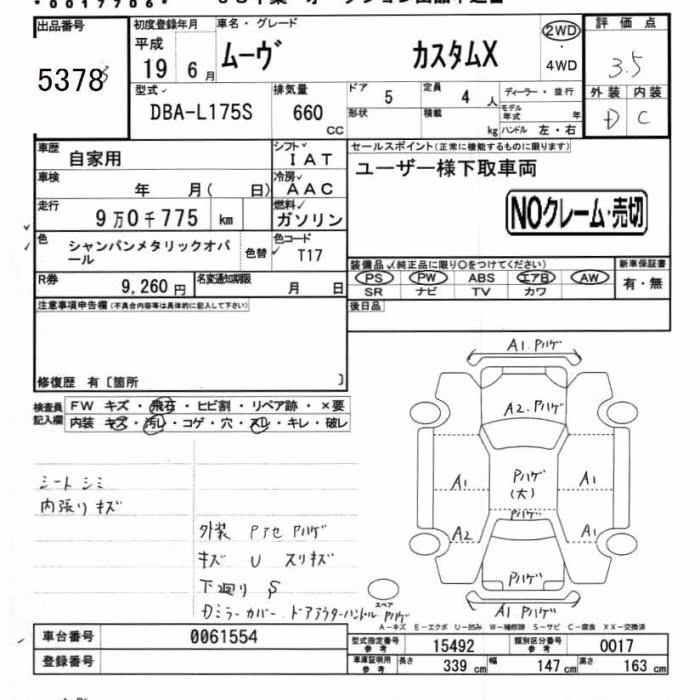 ・0017706・
出品番号
5378
初度登録年月
平成
19 6月
車名・グレード
ムーヴ カスタムX
2WD
・
4WD
評価点
3.5
外装 内装
D C
型式
DBA-L175S
排気量
660
CC
ドア 5
定員 4 人
形状
積載 kg
ディーラー・並行
モデル年式 年
ハンドル 左・右
車歴 自家用
シフト
IAT
車検 年 月( 日)
冷房
AAC
走行 9万0千775 km
燃料
ガソリン
色 シャンパンメタリックオパール
色替
色コード
T17
R券 9,260円
名変通知期限 月 日
セールスポイント(正常に機能するものに限ります)
ユーザー様下取車両
NOクレーム・売切
装備品(純正品に限り○をつけてください)
PS PW ABS エアB AW
SR ナビ TV カワ
新車保証書
有・無
後日品
注意事項申告欄(不具合内容等は具体的に記入して下さい)
修復歴 有〔箇所 〕
検査員記入欄
FW キズ・飛石・ヒビ割・リペア跡・×要
内装 キズ・汚レ・コゲ・穴・スレ・キレ・破レ
シート シミ
内張り キズ
外装 Pアセ Pハゲ
キズ U スリキズ
下廻り S
Dミラーカバー ドアアウターハンドル Pハゲ
A1.Pハゲ
A2.Pハゲ
A1
Pハゲ
(大)
A1
Pハゲ
A2
A1
Pハゲ
A1 Pハゲ
スペア
A－キズ E－エクボ U－凹み W－補修跡 S－サビ C－腐食 XX－交換済
車台番号 0061554
登録番号
型式指定番号
参考
15492
類別区分番号
参考
0017
車庫証明用
参考
長さ 339 cm
幅 147 cm
高さ 163 cm